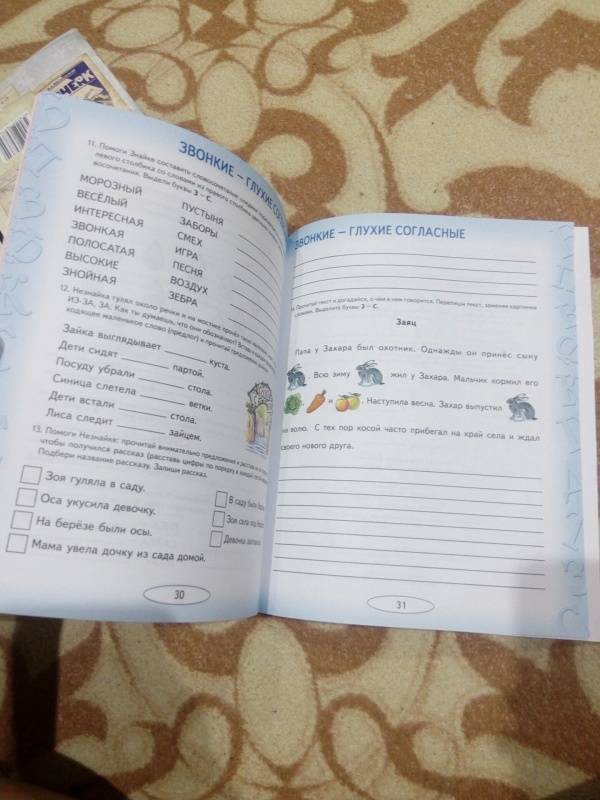 ЗВОНКИЕ – ГЛУХИЕ
11. Помоги Знайке составить словосочетания
левого столбика со словами из правого столбика
восочетания. Выдели буквы З – С.
МОРОЗНЫЙ
ВЕСЁЛЫЙ
ИНТЕРЕСНАЯ
ЗВОНКАЯ
ПОЛОСАТАЯ
ВЫСОКИЕ
ЗНОЙНАЯ
ПУСТЫНЯ
ЗАБОРЫ
СМЕХ
ИГРА
ПЕСНЯ
ВОЗДУХ
ЗЕБРА
12. Незнайка гулял около речки и на мостике
ИЗ-ЗА, ЗА. Как ты думаешь, что они обозначают?
ходящее маленькое слово (предлог) и прочитай
Зайка выглядывает куста.
Дети сидят партой.
Посуду убрали стола.
Синица слетела ветки.
Дети встали стола.
Лиса следит зайцем.
13. Помоги Незнайке: прочитай внимательно предложения и
чтобы получился рассказ (расставь цифры по порядку в
Подбери название рассказу. Запиши рассказ.
Зоя гуляла в саду.
Оса укусила девочку.
На берёзе были осы.
Мама увела дочку из сада домой.
В саду была
Зоя села под
Девочка
30
ЗВОНКИЕ – ГЛУХИЕ СОГЛАСНЫЕ
Прочитай текст и догадайся, о чём в нем говорится. Перепиши текст, заменяя картинки
словами. Выделите буквы З – С.
Заяц
Папа у Захара был охотник. Однажды он принёс сыну
. Всю зиму жил у Захара. Мальчик кормил его
и . Наступила весна. Захар выпустил
на волю. С тех пор косой часто прибегал на край села и ждал
своего нового друга.
31